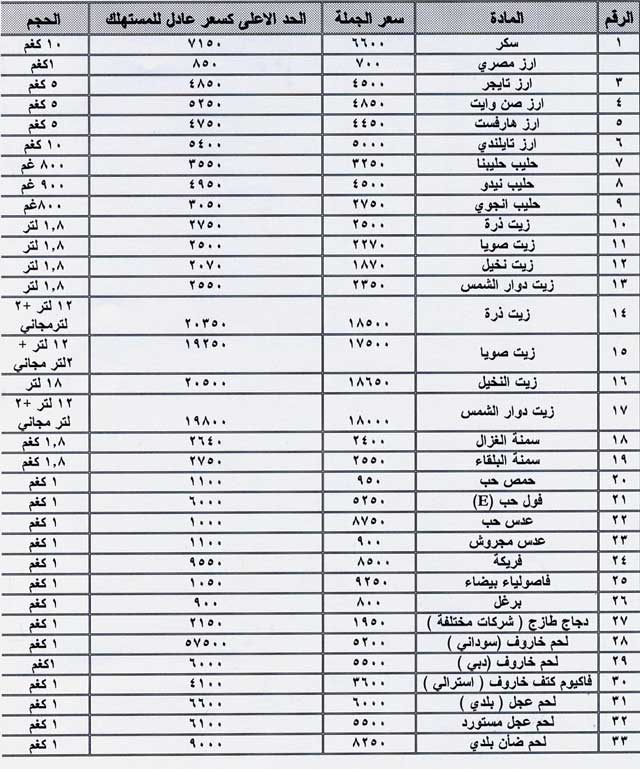 الرقم المادة سعر الجملة الحد الاعلى كسعر عادل للمستهلك الحجم
١ سكر ٦٦٠٠ ٧١٥٠ ١٠ كغم
ارز مصري ٧٠٠ ٨٥٠ ١كغم
٣ ارز تايجر ٤٥٠٠ ٤٨٥٠ ٥ كغم
٤ ارز صن وايت ٤٨٥٠ ٥٢٥٠ ٥ كغم
٥ ارز هارفست ٤٤٥٠ ٤٧٥٠ ٥ كغم
٦ ارز تايلندي ٥٠٠٠ ٥٤٠٠ ١٠ كغم
٧ حليب حليبنا ٣٢٥٠ ٣٥٥٠ ٨٠٠ غم
٨ حليب نيدو ٤٥٠٠ ٤٩٥٠ ٩٠٠ غم
٩ حليب انجوي ٢٧٥٠ ٣٠٥٠ ٨٠٠غم
١٠ زيت ذرة ٢٥٠٠ ٢٧٥٠ ١,٨ لتر
١١ زيت صويا ٢٢٧٠ ٢٥٠٠ ١,٨ لتر
١٢ زيت نخيل ١٨٧٠ ٢٠٧٠ ١,٨ لتر
١٣ زيت دوار الشمس ٢٣٥٠ ٢٥٥٠ ١,٨ لتر
١٤ زيت ذرة ١٨٥٠٠ ٢٠٣٥٠ ١٢ لتر +٢
لترمجاني
١٥ زيت صويا ١٧٥٠٠ ١٩٢٥٠ ١٢ لتر +
٢لتر مجاني
١٦ زيت النخيل ١٨٦٥٠ ٢٠٥٠٠ ١٨ لتر
١٧ زيت دوار الشمس ١٨٠٠٠ ١٩٨٠٠ ١٢ لتر +٢
لتر مجاني
١٨ سمنة الغزال ٢٤٠٠ ٢٦٤٠ ١,٨ كغم
١٩ سمنة البلقاء ٢٥٥٠ ٢٧٥٠ ١,٨ كغم
٢٠ حمص حب ٩٥٠ ١١٠٠ ١ كغم
٢١ فول حب (E) ٥٢٥٠ ٦٠٠٠ ١ كغم
٢٢ عدس حب ٨٧٥٠ ١٠٠٠ ١ كغم
٢٣ عدس مجروش ٩٠٠ ١١٠٠ ١ كغم
٢٤ فريكة ٨٥٠٠ ٩٥٥٠ ١ كغم
٢٥ فاصولياء بيضاء ٩٢٥٠ ١٠٥٠ ١ كغم
٢٦ برغل ٨٠٠ ٩٠٠ ١ كغم
٢٧ دجاج طازج ( شركات مختلفة ) ١٩٥٠ ٢١٥٠ ١ كغم
٢٨ لحم خاروف (سوداني ) ٥٢٠٠ ٥٧٥٠٠ ١ كغم
٢٩ لحم خاروف (دبي ) ٥٥٠٠ ٦٠٠٠ ١كغم
٣٠ فاكيوم كتف خاروف ( استرالي ) ٣٦٠٠ ٤١٠٠ ١ كغم
٣١ لحم عجل ( بلدي ) ٦٠٠٠ ٦٦٠٠ ١ كغم
٣٢ لحم عجل مستورد ٥٥٠٠ ٦١٠٠ ١ كغم
٣٣ لحم ضأن بلدي ٨٢٥٠ ٩٠٠٠ ١ كغم